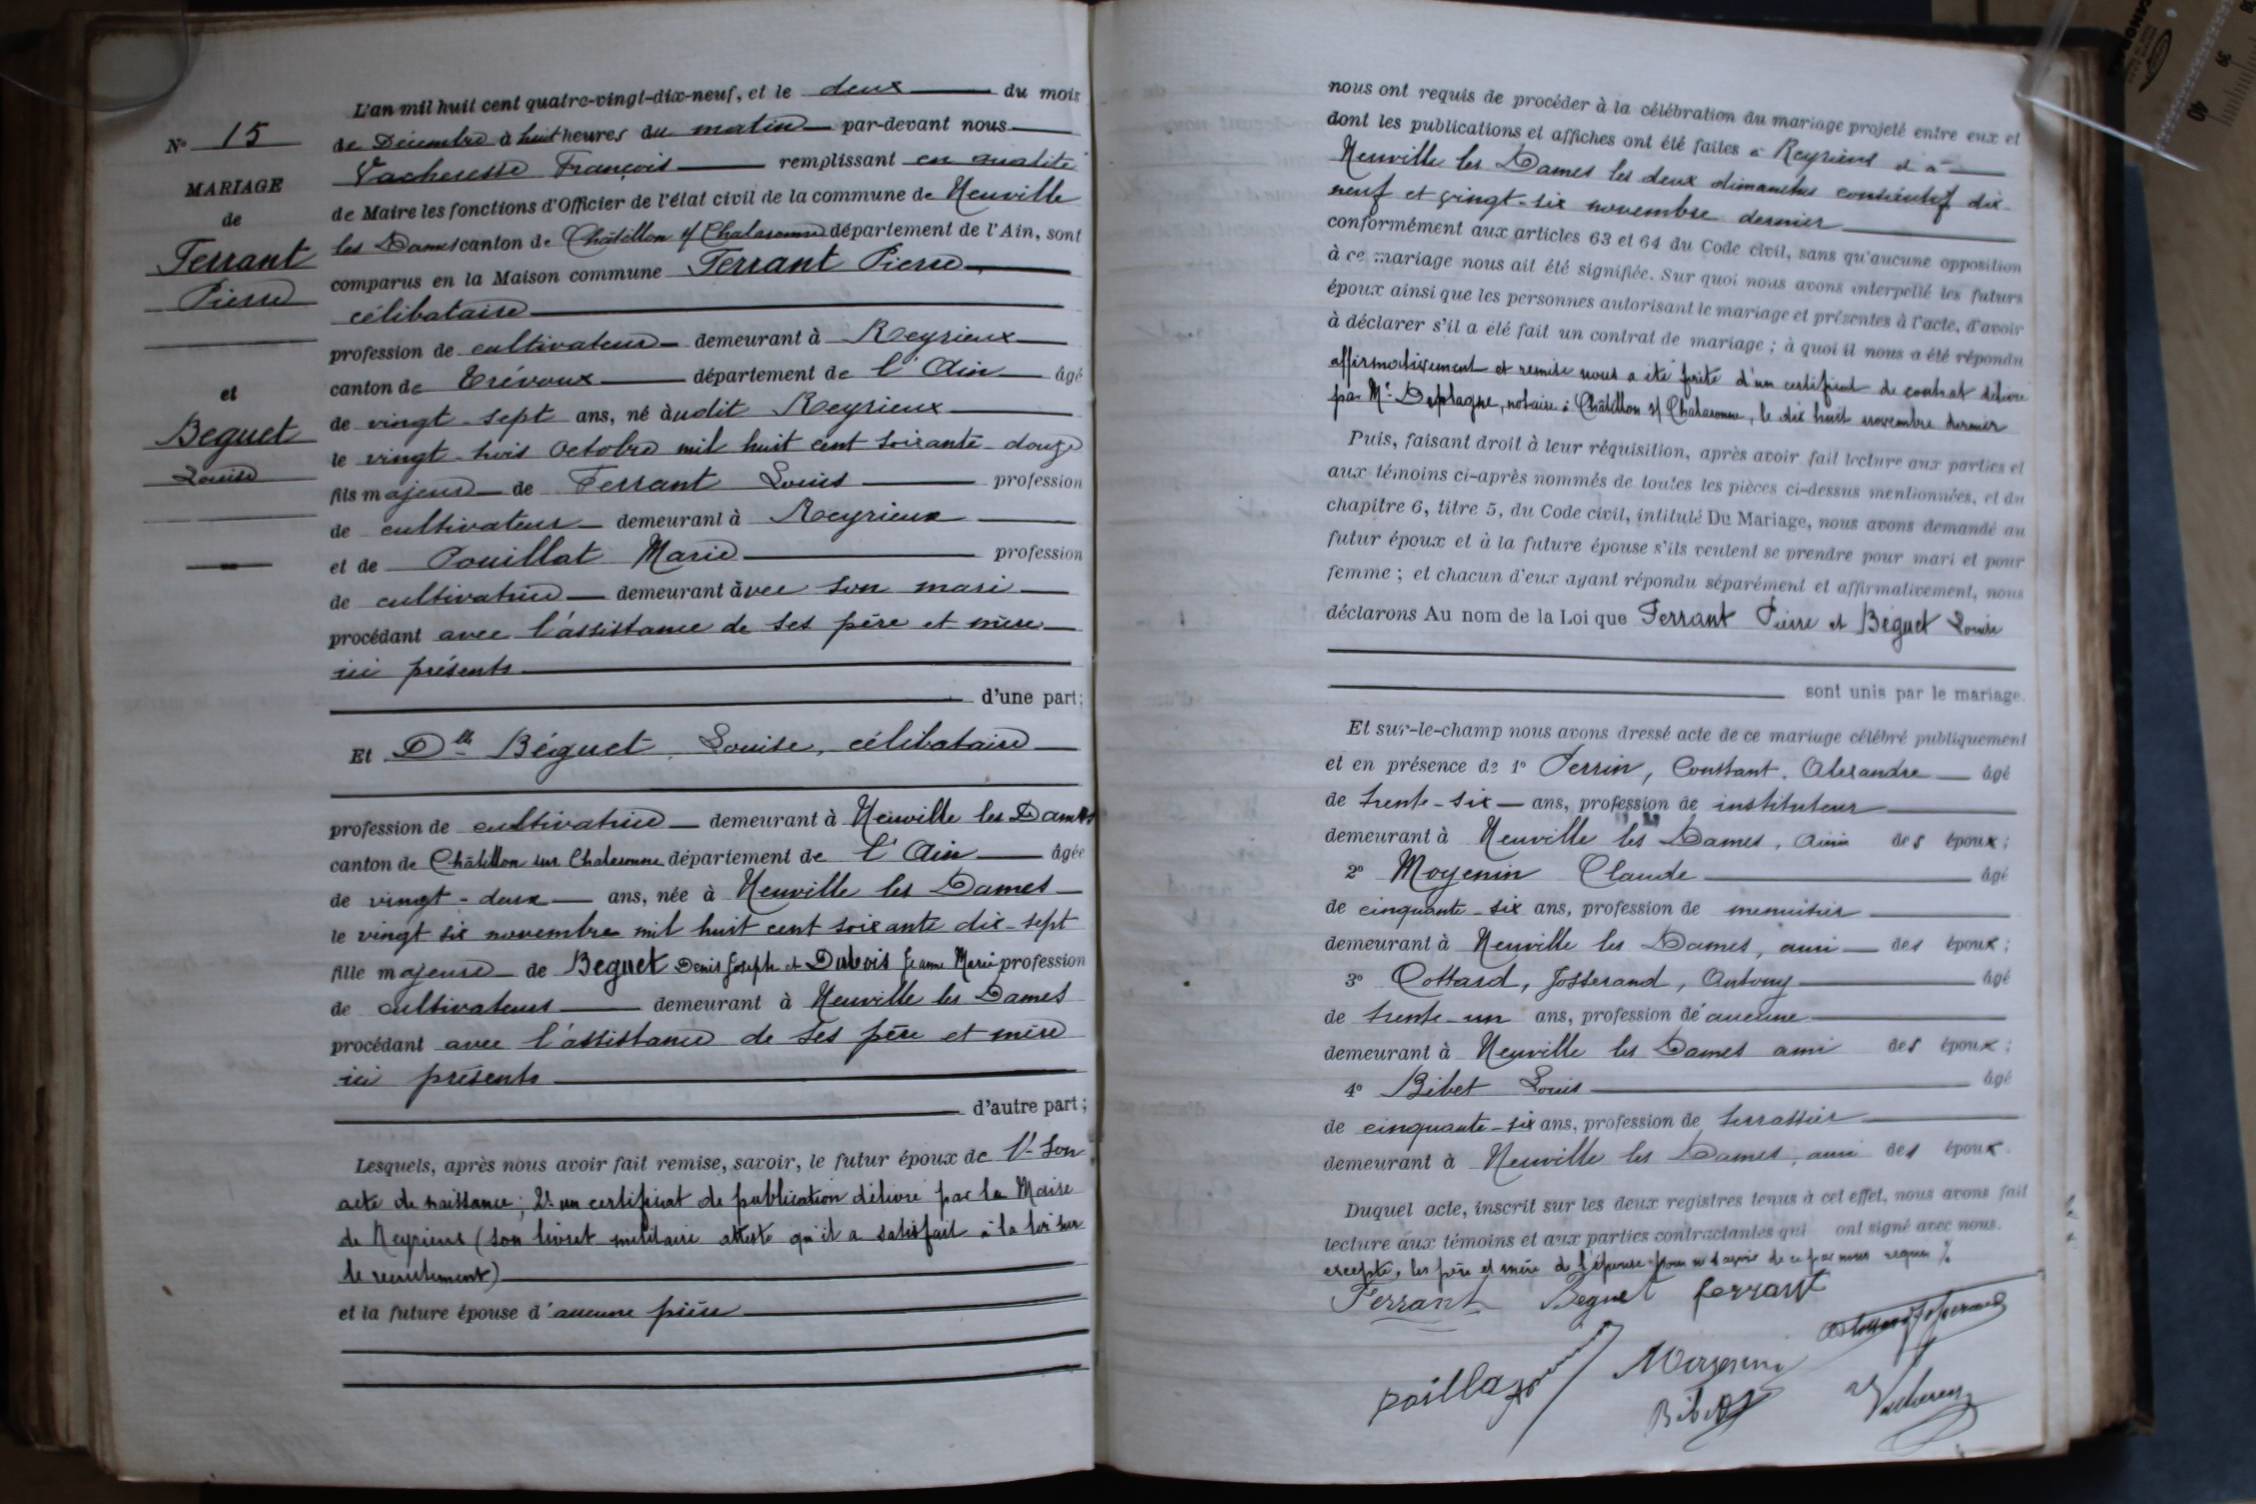 N° 15
MARIAGE
de
Ferrant
Pierre
et
Beguet
Louise
L'an mil huit cent quatre-vingt-dix-neuf, et le deux du mois
de Décembre à huit heures du matin par-devant nous
Vacheresse François remplissant en qualité
de Maire les fonctions d'Officier de l'état civil de la commune de Neuville
les Dames canton de Châtillon s/ Chalaronne département de l'Ain, sont
comparus en la Maison commune Ferrant Pierre
célibataire
profession de cultivateur demeurant à Reyrieux
canton de Trévoux département de l'Ain âgé
de vingt-sept ans, né àudit Reyrieux
le vingt-trois Octobre mil huit cent soixante-douze
fils majeur de Ferrant Louis profession
de cultivateur demeurant à Reyrieux
et de Pouillat Marie profession
de cultivatrice demeurant àvec son mari
procédant avec l'assistance de ses père et mère
ici présents
d'une part;
Et Dlle Béguet, Louise, célibataire
profession de cultivatrice demeurant à Neuville les Dames
canton de Châtillon sur Chalaronne département de l'Ain âgée
de vingt-deux ans, née à Neuville les Dames
le vingt six novembre mil huit cent soixante dix-sept
fille majeure de Beguet Denis Joseph et Dubois Jeanne Marie profession
de cultivateurs demeurant à Neuville les Dames
procédant avec l'assistance de ses père et mère
ici présents
d'autre part;
Lesquels, après nous avoir fait remise, savoir, le futur époux de 1° Son
acte de naissance; 2° un certificat de publication délivré par la Mairie
de Reyrieux (son livret militaire atteste qu'il a satisfait à la loi sur
le recrutement)
et la future épouse d'aucune pièce
nous ont requis de procéder à la célébration du mariage projeté entre eux et
dont les publications et affiches ont été faites à Reyrieux et à
Neuville les Dames les deux dimanches consécutifs dix-
neuf et vingt-six novembre dernier
conformément aux articles 63 et 64 du Code civil, sans qu'aucune opposition
à ce mariage nous ait été signifiée. Sur quoi nous avons interpellé les futurs
époux ainsi que les personnes autorisant le mariage et présentes à l'acte, d'avoir
à déclarer s'il a été fait un contrat de mariage; à quoi il nous a été répondu
affirmativement et remise nous a été faite d'un certificat de contrat délivré
par Me Deplagne, notaire à Châtillon s/ Chalaronne, le dix huit novembre dernier
Puis, faisant droit à leur réquisition, après avoir fait lecture aux parties et
aux témoins ci-après nommés de toutes les pièces ci-dessus mentionnées, et du
chapitre 6, titre 5, du Code civil, intitulé Du Mariage, nous avons demandé au
futur époux et à la future épouse s'ils veulent se prendre pour mari et pour
femme; et chacun d'eux ayant répondu séparément et affirmativement, nous
déclarons Au nom de la Loi que Ferrant Pierre et Béguet Louise
sont unis par le mariage.
Et sur-le-champ nous avons dressé acte de ce mariage célébré publiquement
et en présence de 1° Perrin, Constant, Alexandre âgé
de trente-six ans, profession de instituteur
demeurant à Neuville les Dames, ami des époux;
2° Moyenin Claude âgé
de cinquante-six ans, profession de menuisier
demeurant à Neuville les Dames, ami des époux;
3° Cottard, Josserand, Antony âgé
de trente-un ans, profession dé aucune
demeurant à Neuville les Dames ami des époux;
4° Bibet Louis âgé
de cinquante-six ans, profession de terrassier
demeurant à Neuville les Dames, ami des époux.
Duquel acte, inscrit sur les deux registres tenus à cet effet, nous avons fait
lecture aux témoins et aux parties contractantes qui ont signé avec nous.
excepté, les père et mère de l'épouse pour ne savoir de ce par nous requis %
Ferrant Beguet ferrant
Moyenin
Bibet